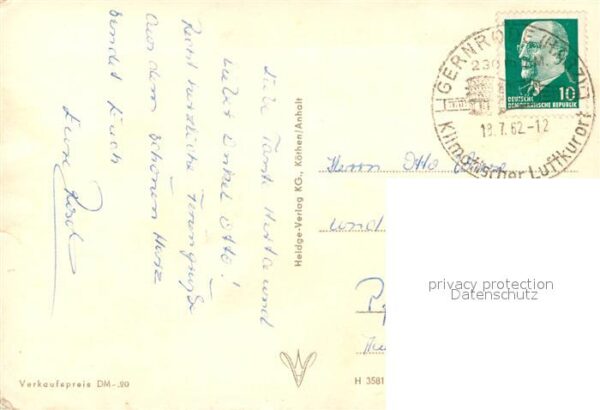 Liebe Tante Herta und
lieber Onkel Otto!
Recht herzliche Feriengrüße
aus dem schönen Harz
sendet Euch
Eure
Heldge-Verlag KG., Köthen/Anhalt
Verkaufspreis DM -.20
GERNRODE (HARZ)
230 m
18.7.62-12
Klimatischer Luftkurort
10
DEUTSCHE
DEMOKRATISCHE REPUBLIK
Herrn Otto
und
H 3581
privacy protection
Datenschutz